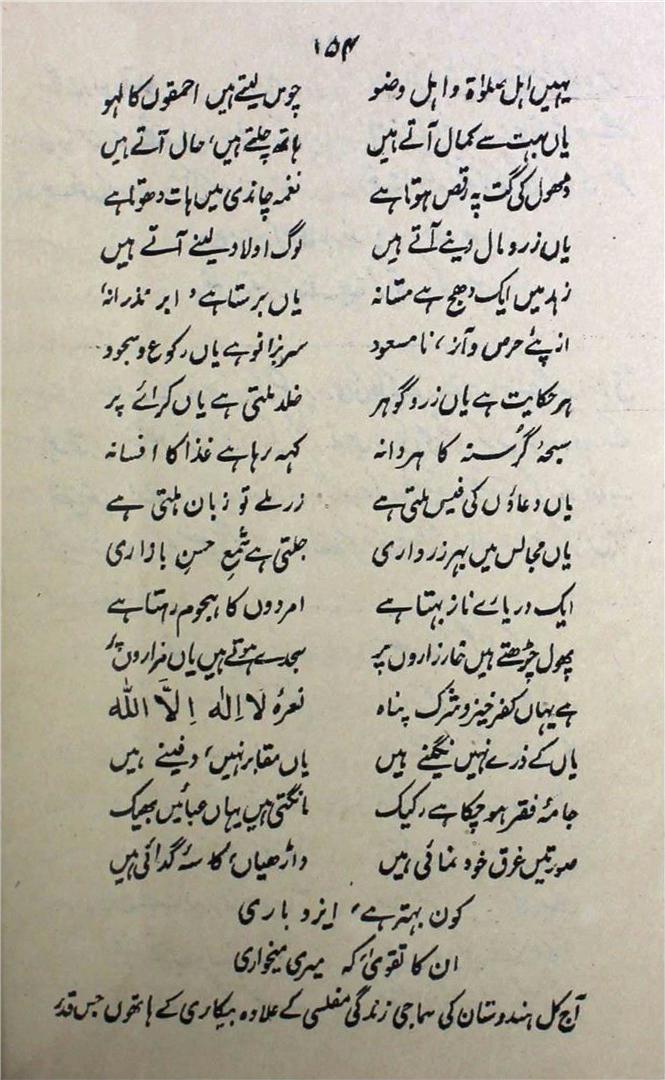 ۱۵۴
یہیں اہل صلوٰۃ و اہل وضو چوس لیتے ہیں احمقوں کا لہو
یاں بہت سے کمال آتے ہیں ہاتھ چلتے ہیں، حال آتے ہیں
ڈھول کی گت پہ رقص ہوتا ہے نغمہ چاندی میں ہات دھوتا ہے
یاں زر و مال دینے آتے ہیں لوگ اولاد لینے آتے ہیں
زہد میں ایک دھج ہے مستانہ یاں برستا ہے، ابر نذرانہ،
از پئے حرص و آز، نامسعود سر بزانو ہے یاں رکوع و سجود
ہر حکایت ہے یاں زر و گوہر خلد ملتی ہے یاں کرائے پر
سبحۂ گرُسنہ کا ہر دانہ کہہ رہا ہے غذا کا افسانہ
یاں دعاؤں کی فیس ملتی ہے زر ملے تو زبان ہلتی ہے
یاں مجالس میں بہر زر واری جلتی ہے شمعِ حسنِ بازاری
ایک دریائے ناز بہتا ہے امردوں کا ہجوم رہتا ہے
پھول چڑھتے ہیں خارزاروں پر سجدے ہوتے ہیں یاں مزاروں پر
ہے یہاں کفر خیز و شرک پناہ نعرۂ لَا اِلٰہ اِلَّا اللّٰہ
یاں کے ذرے نہیں نگینے ہیں یاں مقابر نہیں، دفینے ہیں
جامۂ فقر ہو چکا ہے رکیک مانگتی ہیں یہاں عبائیں بھیک
صورتیں غرق خود نمائی ہیں داڑھیاں، کاسۂ گدائی ہیں
کون بہتر ہے، ایزد باری
ان کا تقویٰ، کہ میری میخواری
آج کل ہندوستان کی سماجی زندگی مفلسی کے علاوہ بیکاری کے ہاتھوں جس قدر